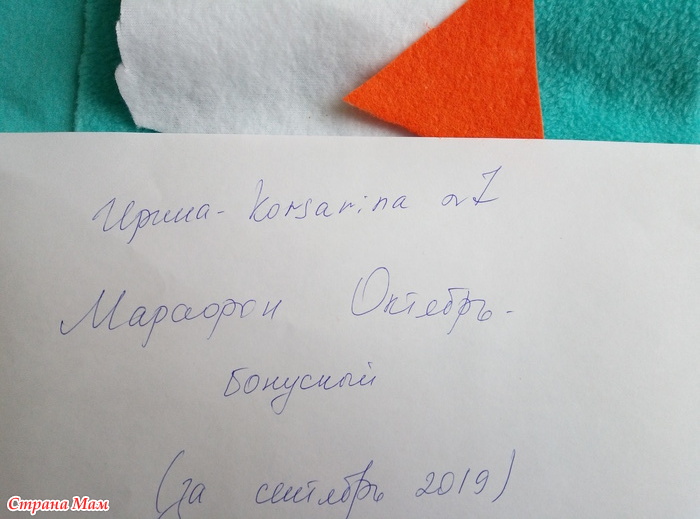 Ирина - korsarina
Марафон Октябрь -
бонусный
(за сентябрь 2019)
Страна Мам